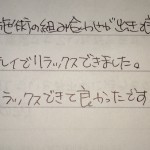 術の組み合わせが出来
レイでリラックスできました。
ラックスできて良かったです